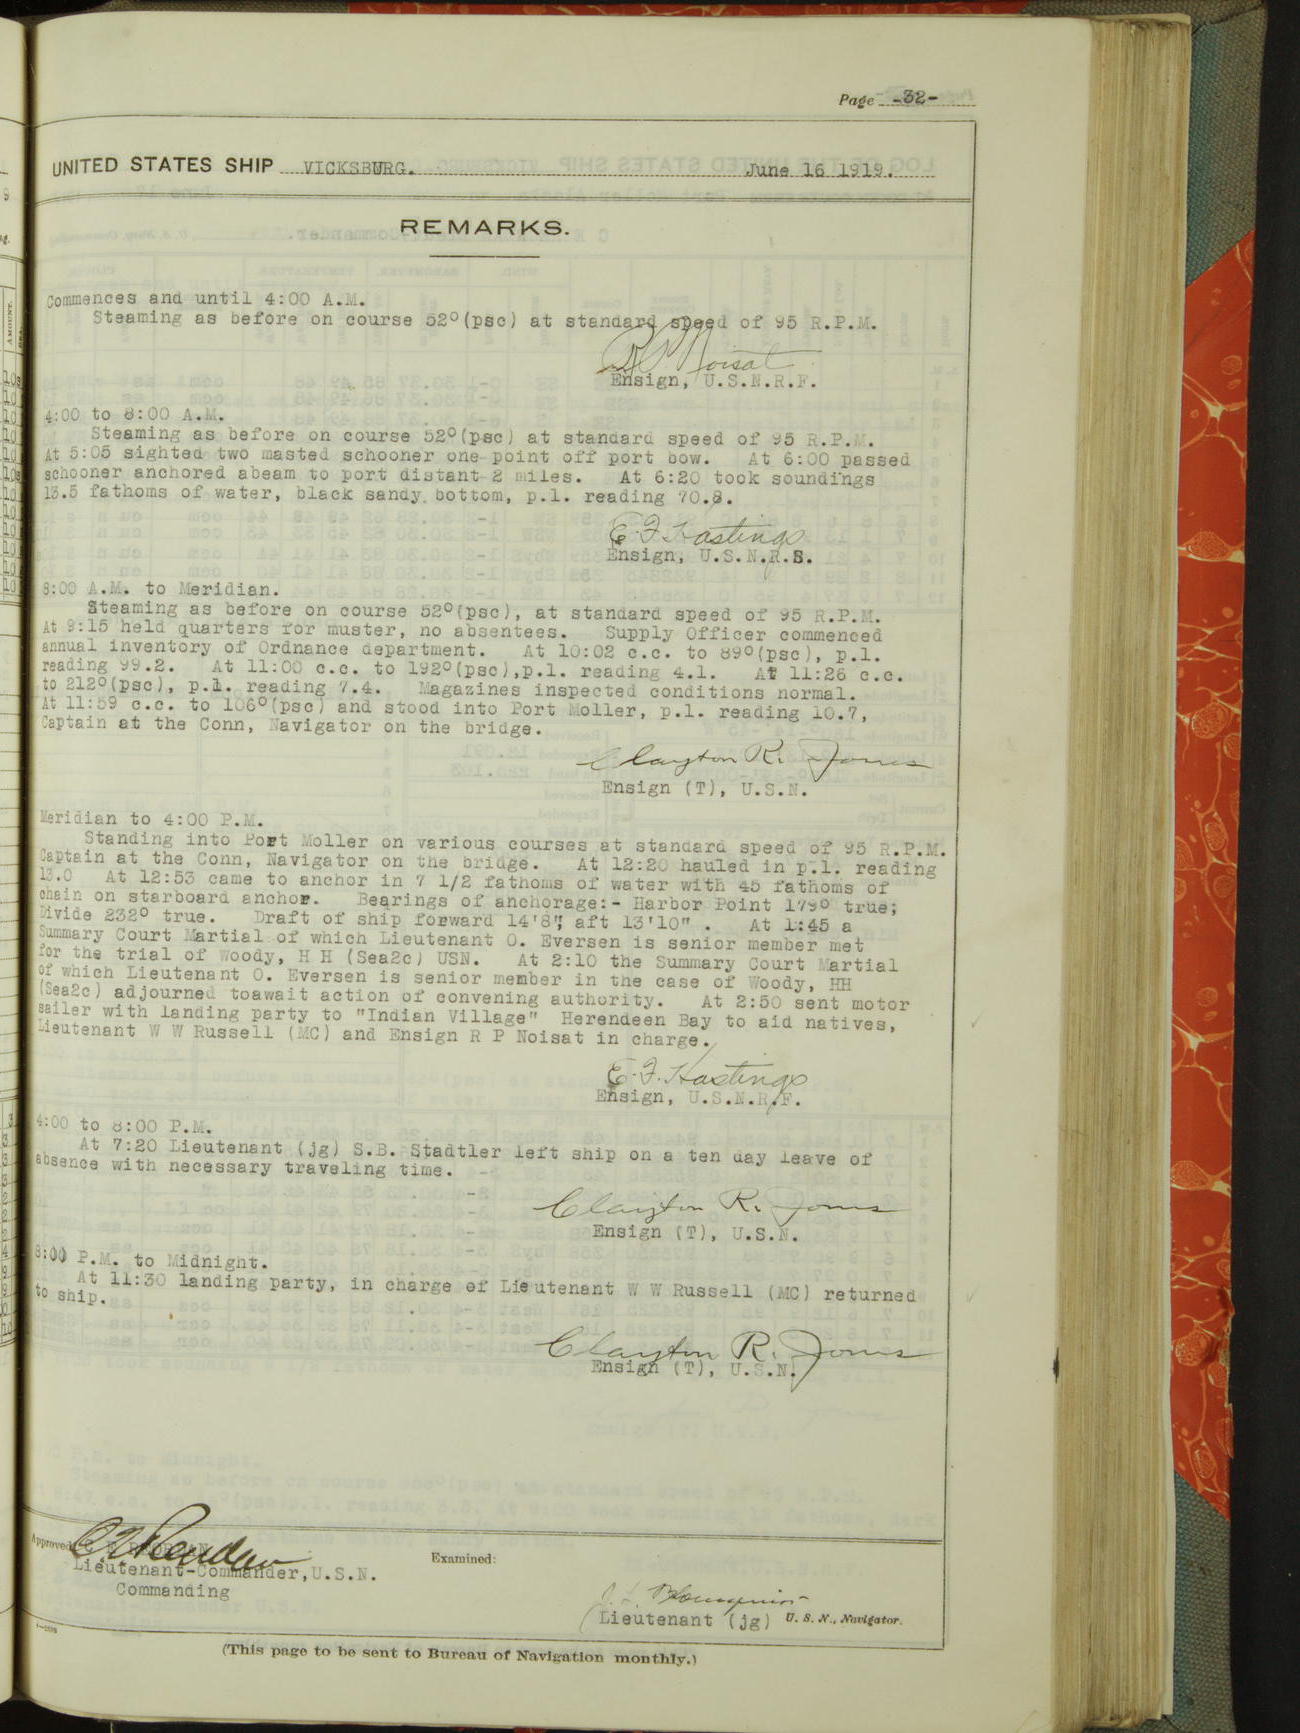 Page -32-
UNITED STATES SHIP VICKSBURG. June 16 1919.
REMARKS.
Commences and until 4:00 A.M.
Steaming as before on course 52°(psc) at standard speed of 95 R.P.M.
R.P. Noisat
Ensign, U.S.N.R.F.
4:00 to 8:00 A.M.
Steaming as before on course 52°(psc) at standard speed of 95 R.P.M.
At 5:05 sighted two masted schooner one point off port bow. At 6:00 passed
schooner anchored abeam to port distant 2 miles. At 6:20 took soundings
13.5 fathoms of water, black sandy bottom, p.l. reading 70.8.
E.F. Hastings
Ensign, U.S.N.R.S.
8:00 A.M. to Meridian.
Steaming as before on course 52°(psc), at standard speed of 95 R.P.M.
At 9:15 held quarters for muster, no absentees. Supply Officer commenced
annual inventory of Ordnance department. At 10:02 c.c. to 89°(psc), p.l.
reading 99.2. At 11:00 c.c. to 192°(psc),p.l. reading 4.1. At 11:26 c.c.
to 212°(psc), p.l. reading 7.4. Magazines inspected conditions normal.
At 11:59 c.c. to 106°(psc) and stood into Port Moller, p.l. reading 10.7,
Captain at the Conn, Navigator on the bridge.
Clayton R. Jones
Ensign (T), U.S.N.
Meridian to 4:00 P.M.
Standing into Port Moller on various courses at standard speed of 95 R.P.M.
Captain at the Conn, Navigator on the bridge. At 12:20 hauled in p.l. reading
13.0 At 12:53 came to anchor in 7 1/2 fathoms of water with 45 fathoms of
chain on starboard anchor. Bearings of anchorage:- Harbor Point 179° true;
Divide 232° true. Draft of ship forward 14'8", aft 13'10" . At 1:45 a
Summary Court Martial of which Lieutenant O. Eversen is senior member met
for the trial of Woody, H H (Sea2c) USN. At 2:10 the Summary Court Martial
of which Lieutenant O. Eversen is senior member in the case of Woody, HH
(Sea2c) adjourned toawait action of convening authority. At 2:50 sent motor
sailer with landing party to "Indian Village" Herendeen Bay to aid natives,
Lieutenant W W Russell (MC) and Ensign R P Noisat in charge.
E.F. Hastings
Ensign, U.S.N.R.F.
4:00 to 8:00 P.M.
At 7:20 Lieutenant (jg) S.B. Stadtler left ship on a ten day leave of
absence with necessary traveling time.
Clayton R. Jones
Ensign (T), U.S.N.
8:00 P.M. to Midnight.
At 11:30 landing party, in charge of Lieutenant W W Russell (MC) returned
to ship.
Clayton R. Jones
Ensign (T), U.S.N.
Approved:
Lieutenant-Commander, U.S.N.
Commanding
Examined:
Lieutenant (jg) U. S. N., Navigator.
(This page to be sent to Bureau of Navigation monthly.)